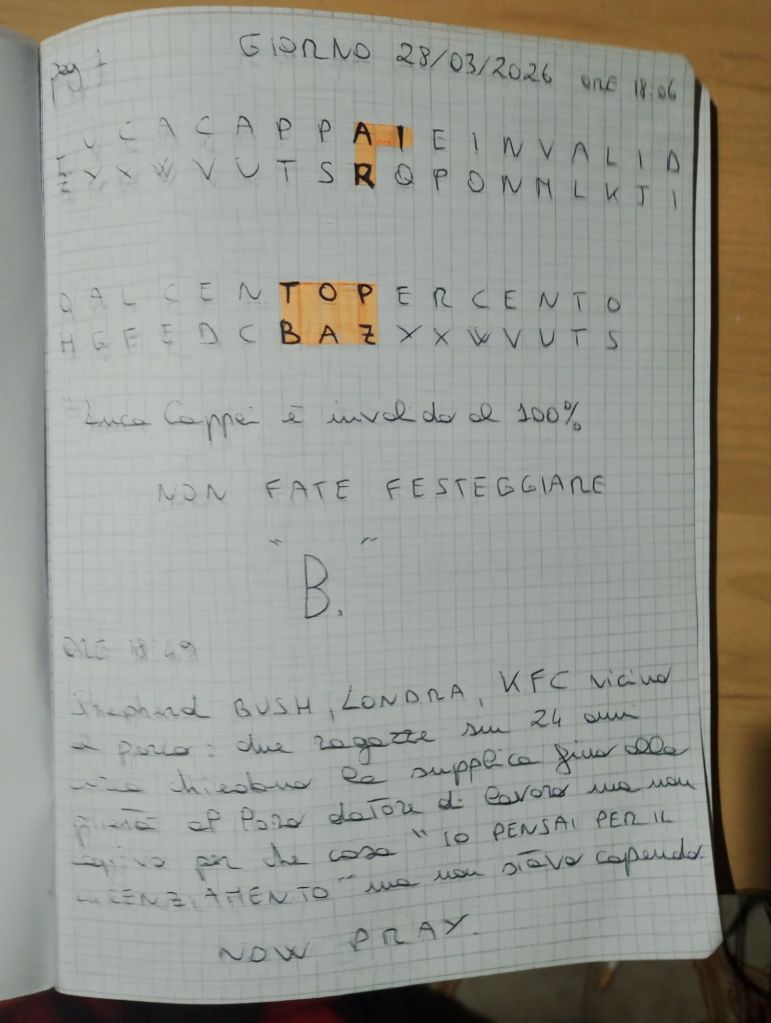 pag 1
GIORNO 28/03/2026 ORE 18:06
L U C A C A P P A I E I N V A L I D
Z Y X W V U T S R Q P O N M L K J I
O A L C E N T O P E R C E N T O
H G F E D C B A Z Y X W V U T S
"Luca Cappai è invalido al 100%
NON FATE FESTEGGIARE
"B."
ORE 18:49
Shepherd BUSH, LONDRA, KFC vicino
parco: due ragazze sui 24 anni
chiedono la supplica fino alla
pietà al loro datore di lavoro ma non
capivo per che cosa "IO PENSAI PER IL
LICENZIAMENTO" ma non stavo capendo.
NOW PRAY.